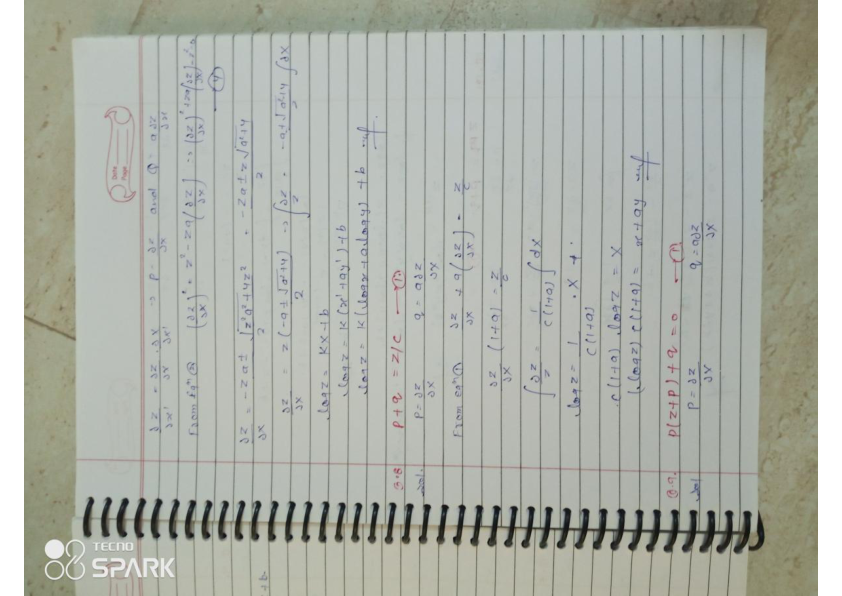 Date
Page
∂z/∂x' = ∂z/∂X · ∂X/∂x' → P = ∂z/∂X and Q = a∂z/∂X
From Eqⁿ ② (∂z/∂X)² = z² - za(∂z/∂X) → (∂z/∂X)² + za(∂z/∂X) - z² = 0
— ④
∂z/∂X = -za ± √z²a²+4z² / 2 = -za ± z√a²+4 / 2
∂z/∂X = z(-a±√a²+4) / 2 → ∫∂z/z = -a±√a²+4 / 2 ∫∂X
log z = KX + b
log z = K(x'+ay') + b
log z = K(log x + a log y) + b
Q.8. p + q = z/c — ①
Sol. P = ∂z/∂X q = a∂z/∂X
From Eqⁿ ① ∂z/∂X + a(∂z/∂X) = z/c
∂z/∂X (1+a) = z/c
∫∂z/z = 1/c(1+a) ∫dX
log z = 1/c(1+a) · X +
c(1+a) · log z = X
(log z) c(1+a) = x + ay
Q.9. p(z+p) + q = 0 — ①
Sol P = ∂z/∂X q = a∂z/∂X
+b
TECNO
SPARK